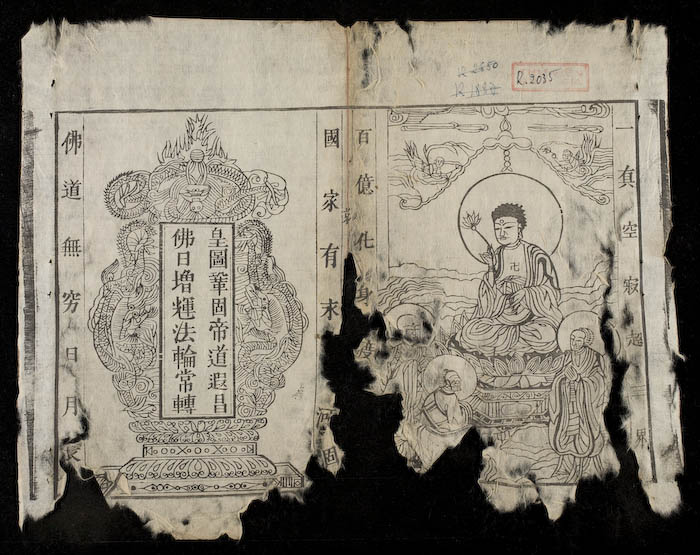 R.2035
一真空寂超界
百億化身
國家有河固
皇圖鞏固帝道遐昌
佛日增輝法輪常轉
佛道無窮日月長
卍